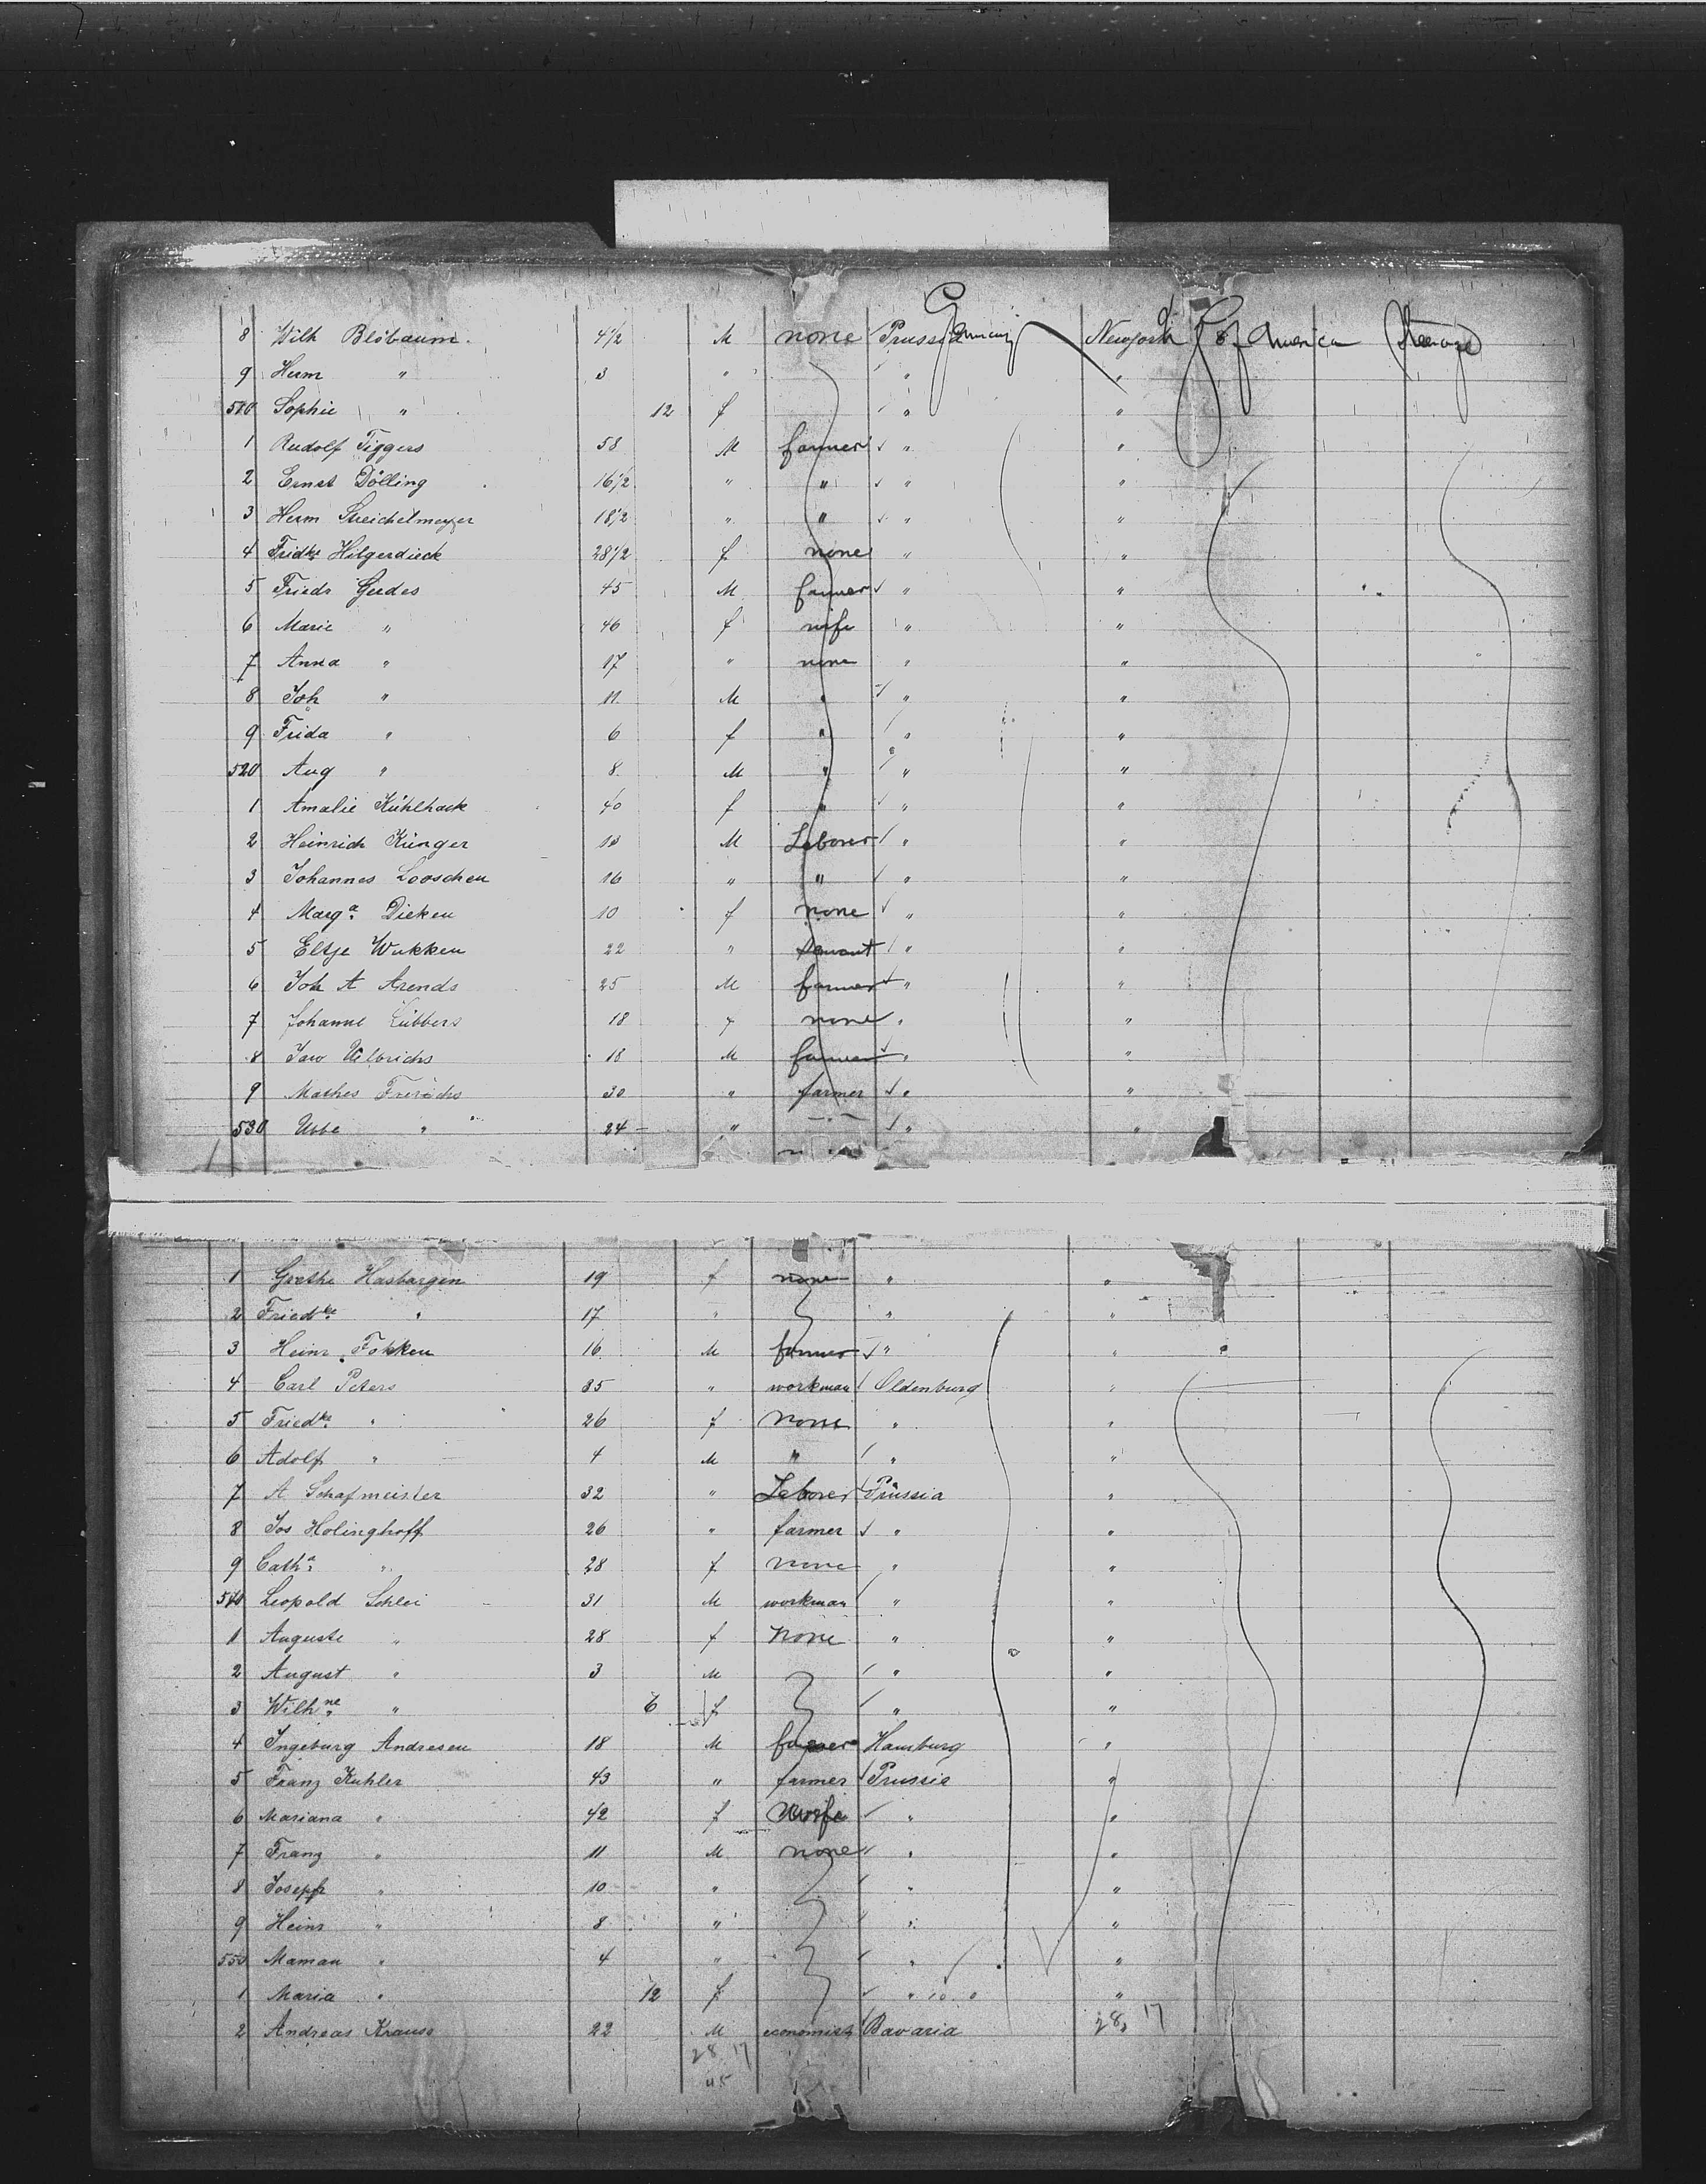 8 Wilh Blöbaum. 4½ M none Prussia Germany Newyork U S of America Steerage
9 Herm " 3 " " "
510 Sophie " 12 f " "
1 Rudolf Tiggers 58 M farmer " "
2 Ernst Dölling 16½ " " " "
3 Herm Streichelmeyer 18½ " " " "
4 Fridke Hilgerdieck 28½ f none " "
5 Friedr Gerdes 45 M farmer " "
6 Marie " 46 f wife " "
7 Anna " 17 " none " "
8 Joh " 11 M " " "
9 Frida " 6 f " " "
520 Aug " 8 M " " "
1 Amalie Kühlhack 40 f " " "
2 Heinrich Künger 13 M Laborer " "
3 Johannes Looschen 16 " " " "
4 Marga Dieken 10 f none " "
5 Eltje Wukken 22 " servant " "
6 Joh A Arends 25 M farmer " "
7 Johanne Lübbers 18 f none " "
8 Jaw Ulbrichs 18 M farmer " "
9 Mathes Frerichs 30 " farmer " "
530 Ubbe " 24 " " "
1 Grethe Hasbargen 19 f none " "
2 Friedke " 17 " " "
3 Heinr Fokken 16 M farmer " "
4 Carl Peters 35 " workman Oldenburg "
5 Friedke " 26 f none " "
6 Adolf " 4 M " " "
7 A Schafmeister 32 " Laborer Prussia "
8 Jos Holinghoff 26 " farmer " "
9 Catha " 28 f none " "
540 Leopold Schlei 31 M workman " "
1 Auguste " 28 f none " "
2 August " 3 M " "
3 Wilhne " 6 f " "
4 Ingeburg Andresen 18 M farmer Hamburg "
5 Franz Kuhler 43 " farmer Prussia "
6 Mariana " 42 f wife " "
7 Franz " 11 M none " "
8 Joseph " 10 " " "
9 Heinr " 8 " " "
550 Maman " 4 " " "
1 Maria " 12 f " "
2 Andreas Krauss 22 M economist Bavaria 28, 17
28 17
45